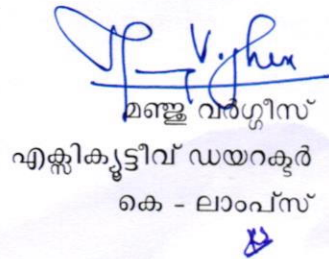 മഞ്ജു വർഗ്ഗീസ്
എക്സിക്യൂട്ടീവ് ഡയറക്ടർ
കെ - ലാംപ്സ്